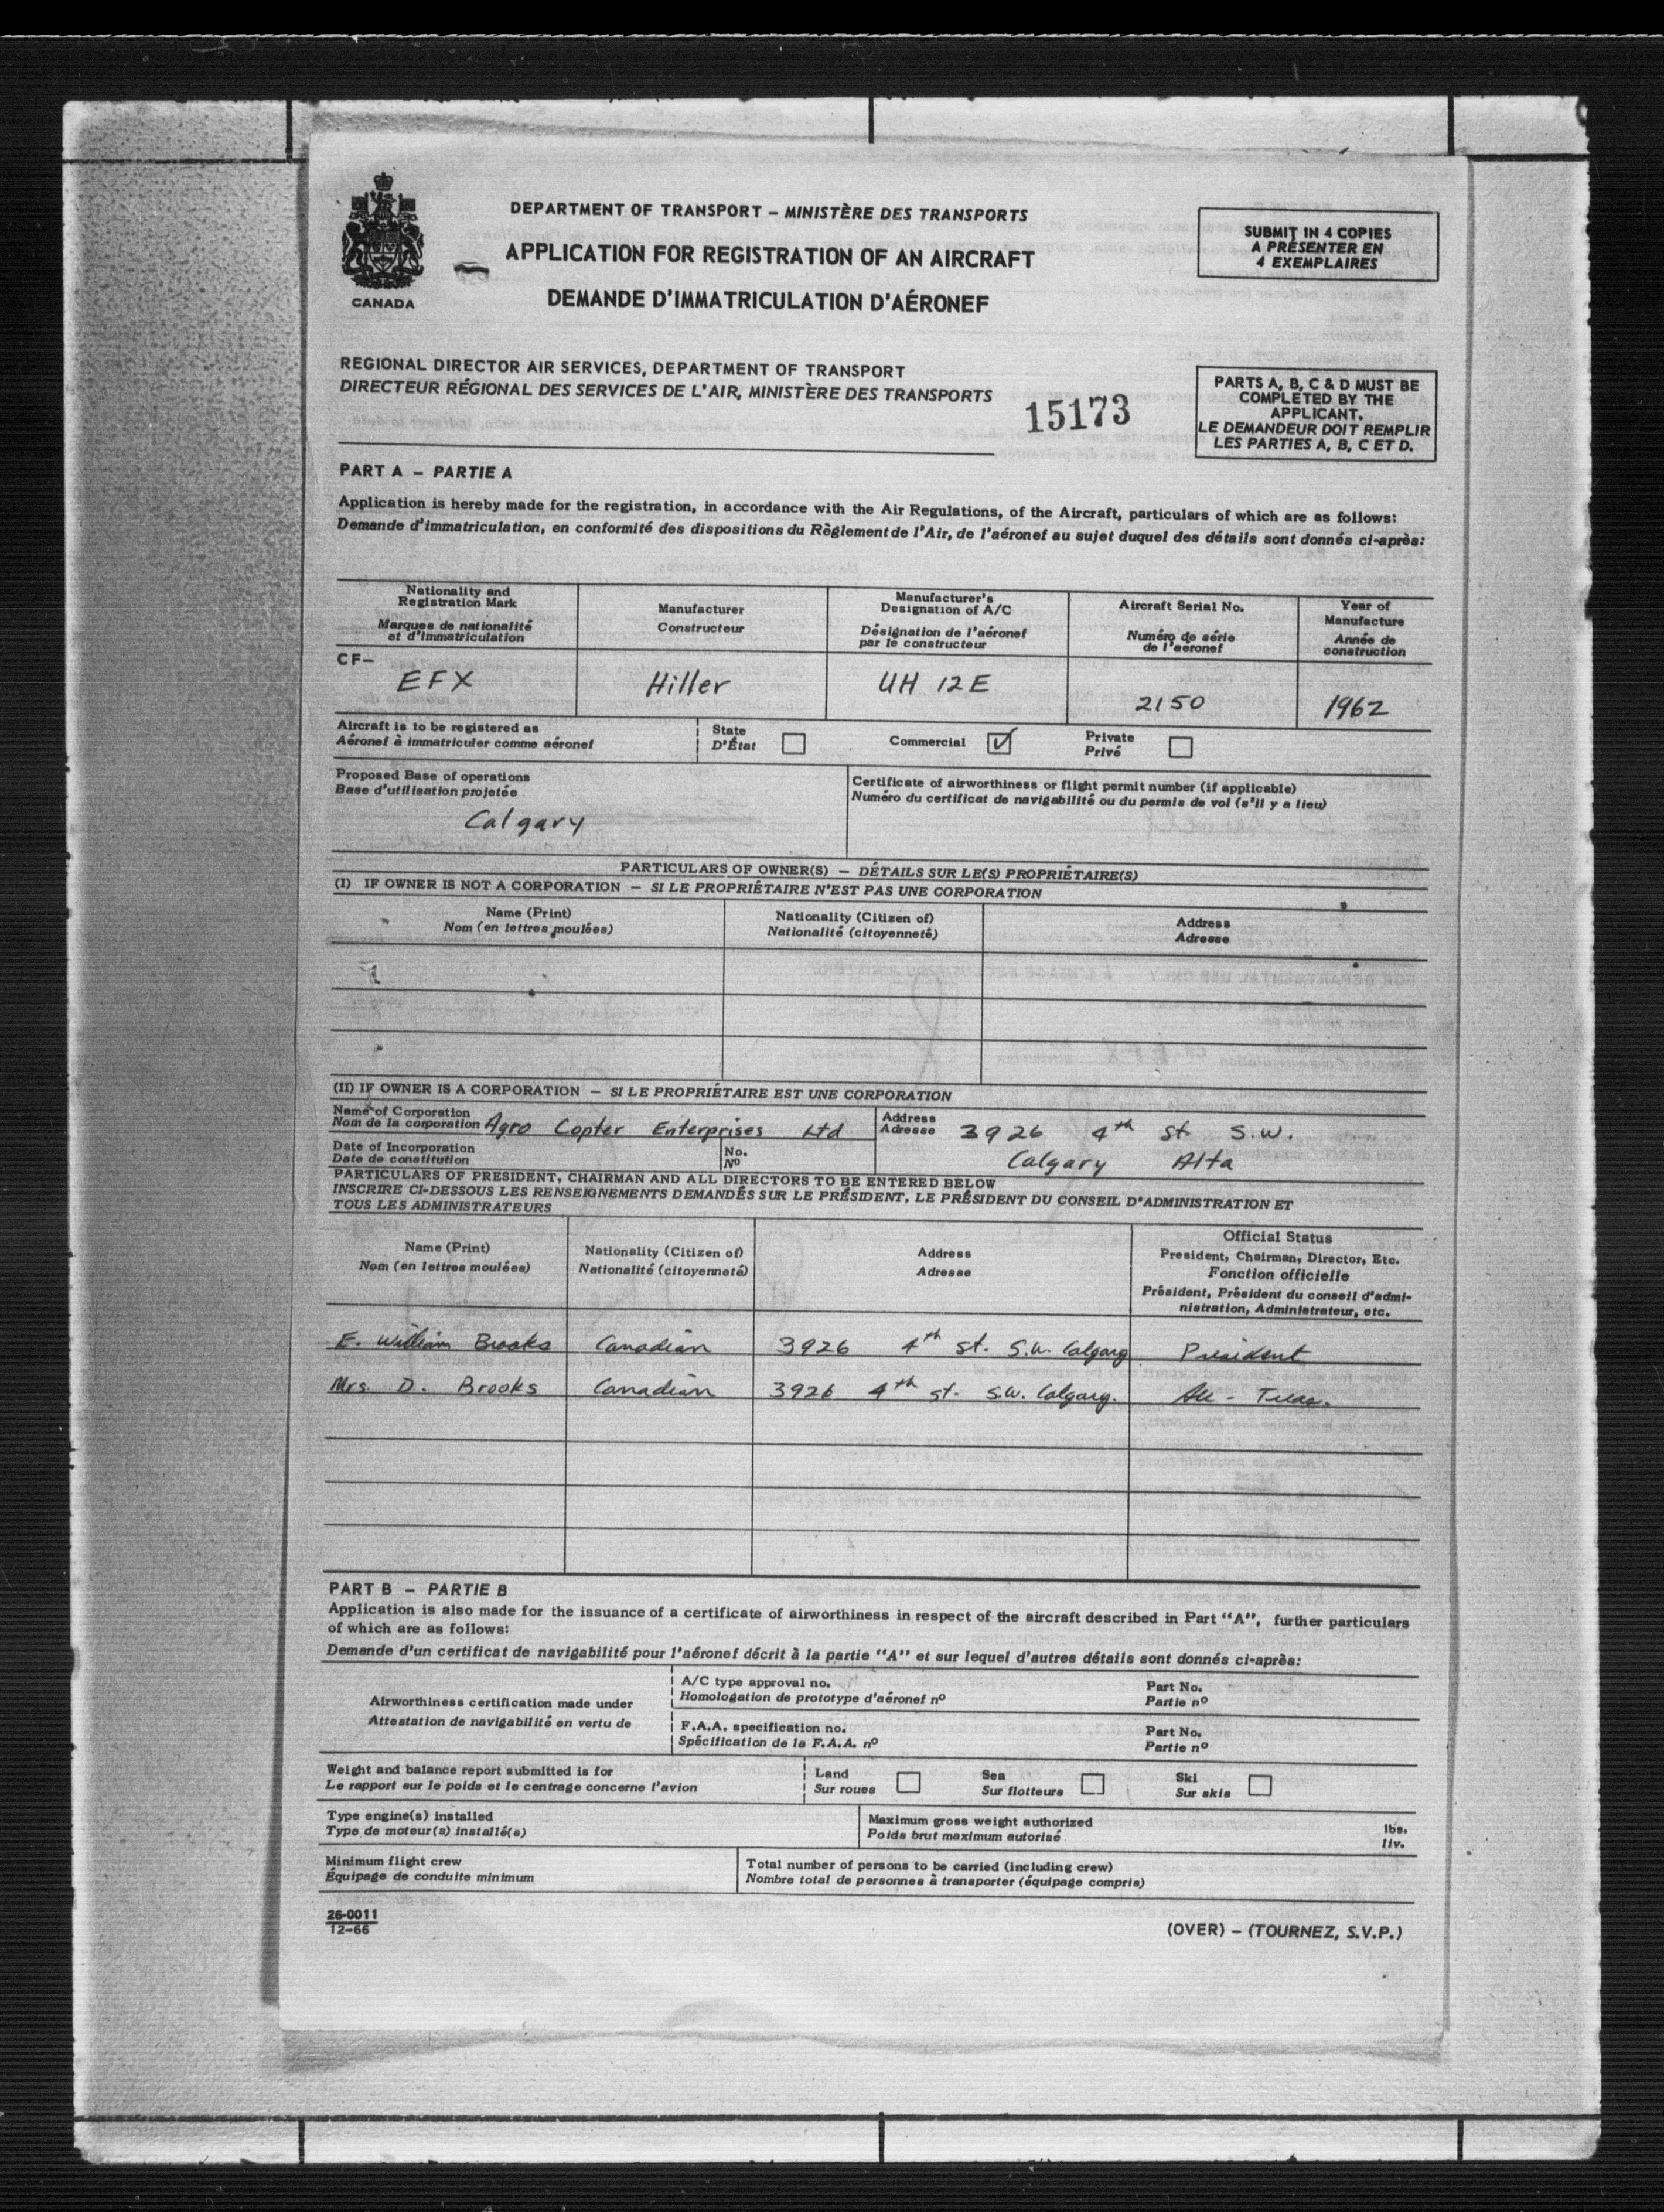 DEPARTMENT OF TRANSPORT – MINISTÈRE DES TRANSPORTS
APPLICATION FOR REGISTRATION OF AN AIRCRAFT
DEMANDE D'IMMATRICULATION D'AÉRONEF
CANADA
SUBMIT IN 4 COPIES
A PRÉSENTER EN
4 EXEMPLAIRES
REGIONAL DIRECTOR AIR SERVICES, DEPARTMENT OF TRANSPORT
DIRECTEUR RÉGIONAL DES SERVICES DE L'AIR, MINISTÈRE DES TRANSPORTS
15173
PARTS A, B, C & D MUST BE
COMPLETED BY THE
APPLICANT.
LE DEMANDEUR DOIT REMPLIR
LES PARTIES A, B, C ET D.
PART A – PARTIE A
Application is hereby made for the registration, in accordance with the Air Regulations, of the Aircraft, particulars of which are as follows:
Demande d'immatriculation, en conformité des dispositions du Règlement de l'Air, de l'aéronef au sujet duquel des détails sont donnés ci-après:
Nationality and
Registration Mark
Marques de nationalité
et d'immatriculation
Manufacturer
Constructeur
Manufacturer's
Designation of A/C
Désignation de l'aéronef
par le constructeur
Aircraft Serial No.
Numéro de série
de l'aéronef
Year of
Manufacture
Année de
construction
CF– EFX
Hiller
UH 12E
2150
1962
Aircraft is to be registered as
Aéronef à immatriculer comme aéronef
State
D'État
Commercial ✓
Private
Privé
Proposed Base of operations
Base d'utilisation projetée
Calgary
Certificate of airworthiness or flight permit number (if applicable)
Numéro du certificat de navigabilité ou du permis de vol (s'il y a lieu)
PARTICULARS OF OWNER(S) – DÉTAILS SUR LE(S) PROPRIÉTAIRE(S)
(I) IF OWNER IS NOT A CORPORATION – SI LE PROPRIÉTAIRE N'EST PAS UNE CORPORATION
Name (Print)
Nom (en lettres moulées)
Nationality (Citizen of)
Nationalité (citoyenneté)
Address
Adresse
(II) IF OWNER IS A CORPORATION – SI LE PROPRIÉTAIRE EST UNE CORPORATION
Name of Corporation
Nom de la corporation Agro Copter Enterprises Ltd
Address
Adresse 3926 4th St. S.W.
Calgary Alta
Date of Incorporation
Date de constitution
No.
Nº
PARTICULARS OF PRESIDENT, CHAIRMAN AND ALL DIRECTORS TO BE ENTERED BELOW
INSCRIRE CI-DESSOUS LES RENSEIGNEMENTS DEMANDÉS SUR LE PRÉSIDENT, LE PRÉSIDENT DU CONSEIL D'ADMINISTRATION ET
TOUS LES ADMINISTRATEURS
Name (Print)
Nom (en lettres moulées)
Nationality (Citizen of)
Nationalité (citoyenneté)
Address
Adresse
Official Status
President, Chairman, Director, Etc.
Fonction officielle
Président, Président du conseil d'admi-
nistration, Administrateur, etc.
E. William Brooks Canadian 3926 4th St. S.W. Calgary President
Mrs. D. Brooks Canadian 3926 4th St. S.W. Calgary. Treas.
PART B – PARTIE B
Application is also made for the issuance of a certificate of airworthiness in respect of the aircraft described in Part "A", further particulars
of which are as follows:
Demande d'un certificat de navigabilité pour l'aéronef décrit à la partie "A" et sur lequel d'autres détails sont donnés ci-après:
Airworthiness certification made under
Attestation de navigabilité en vertu de
A/C type approval no.
Homologation de prototype d'aéronef nº
Part No.
Partie nº
F.A.A. specification no.
Spécification de la F.A.A. nº
Part No.
Partie nº
Weight and balance report submitted is for
Le rapport sur le poids et le centrage concerne l'avion
Land
Sur roues
Sea
Sur flotteurs
Ski
Sur skis
Type engine(s) installed
Type de moteur(s) installé(s)
Maximum gross weight authorized
Poids brut maximum autorisé
lbs.
liv.
Minimum flight crew
Équipage de conduite minimum
Total number of persons to be carried (including crew)
Nombre total de personnes à transporter (équipage compris)
26-0011
12-66
(OVER) – (TOURNEZ, S.V.P.)